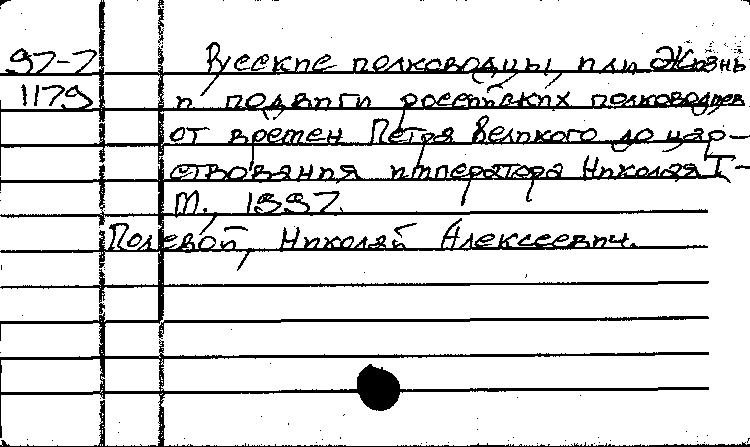 97-7 Русские полководцы, или Жизнь
1179 и подвиги российских полководцев
от времен Петра Великого до цар-
ствования императора Николая I-
М., 1997.
Полевой, Николай Алексеевич.